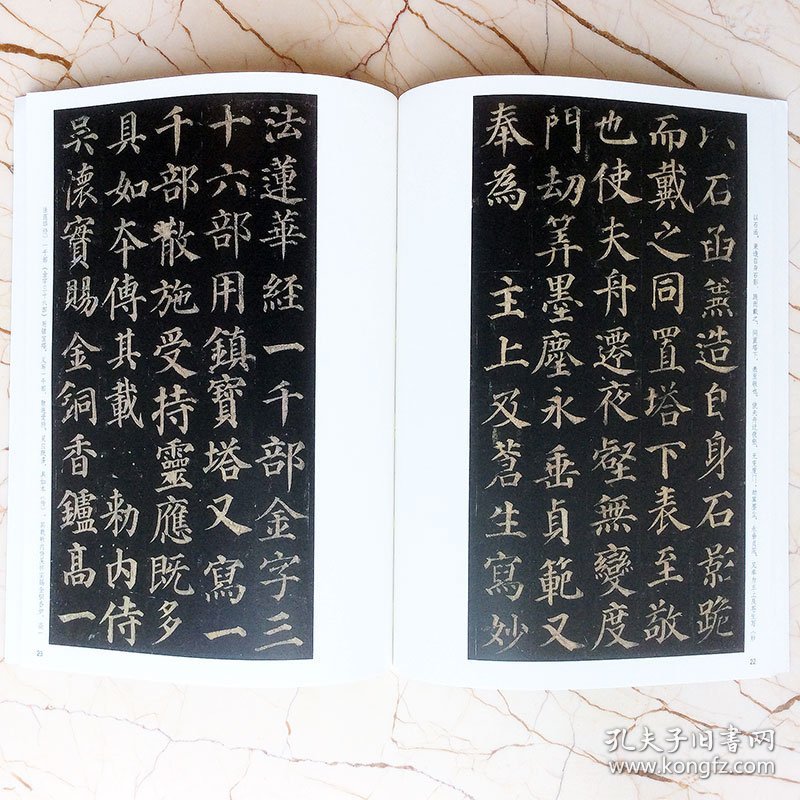 以石函兼造自身石影跪
而戴之同置塔下表至敬
也使夫舟遷夜壑無變度
門劫筭墨塵永垂貞範又
奉為 主上及蒼生寫妙
22
法蓮華経一千部金字三
十六部用鎮寶塔又寫一
千部散施受持靈應既多
具如本傳其載 勅内侍
吳懷實賜金銅香鑪高一
23
孔夫子旧书网
www.kongfz.com